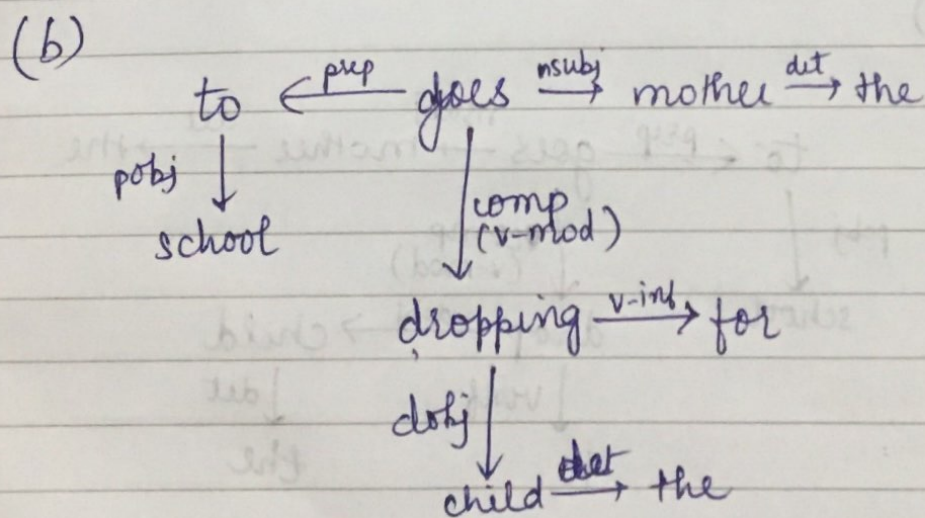 (b)
to prep goes nsubj mother det the
pobj
school
comp
(v-mod)
dropping v-inf for
dobj
child det the